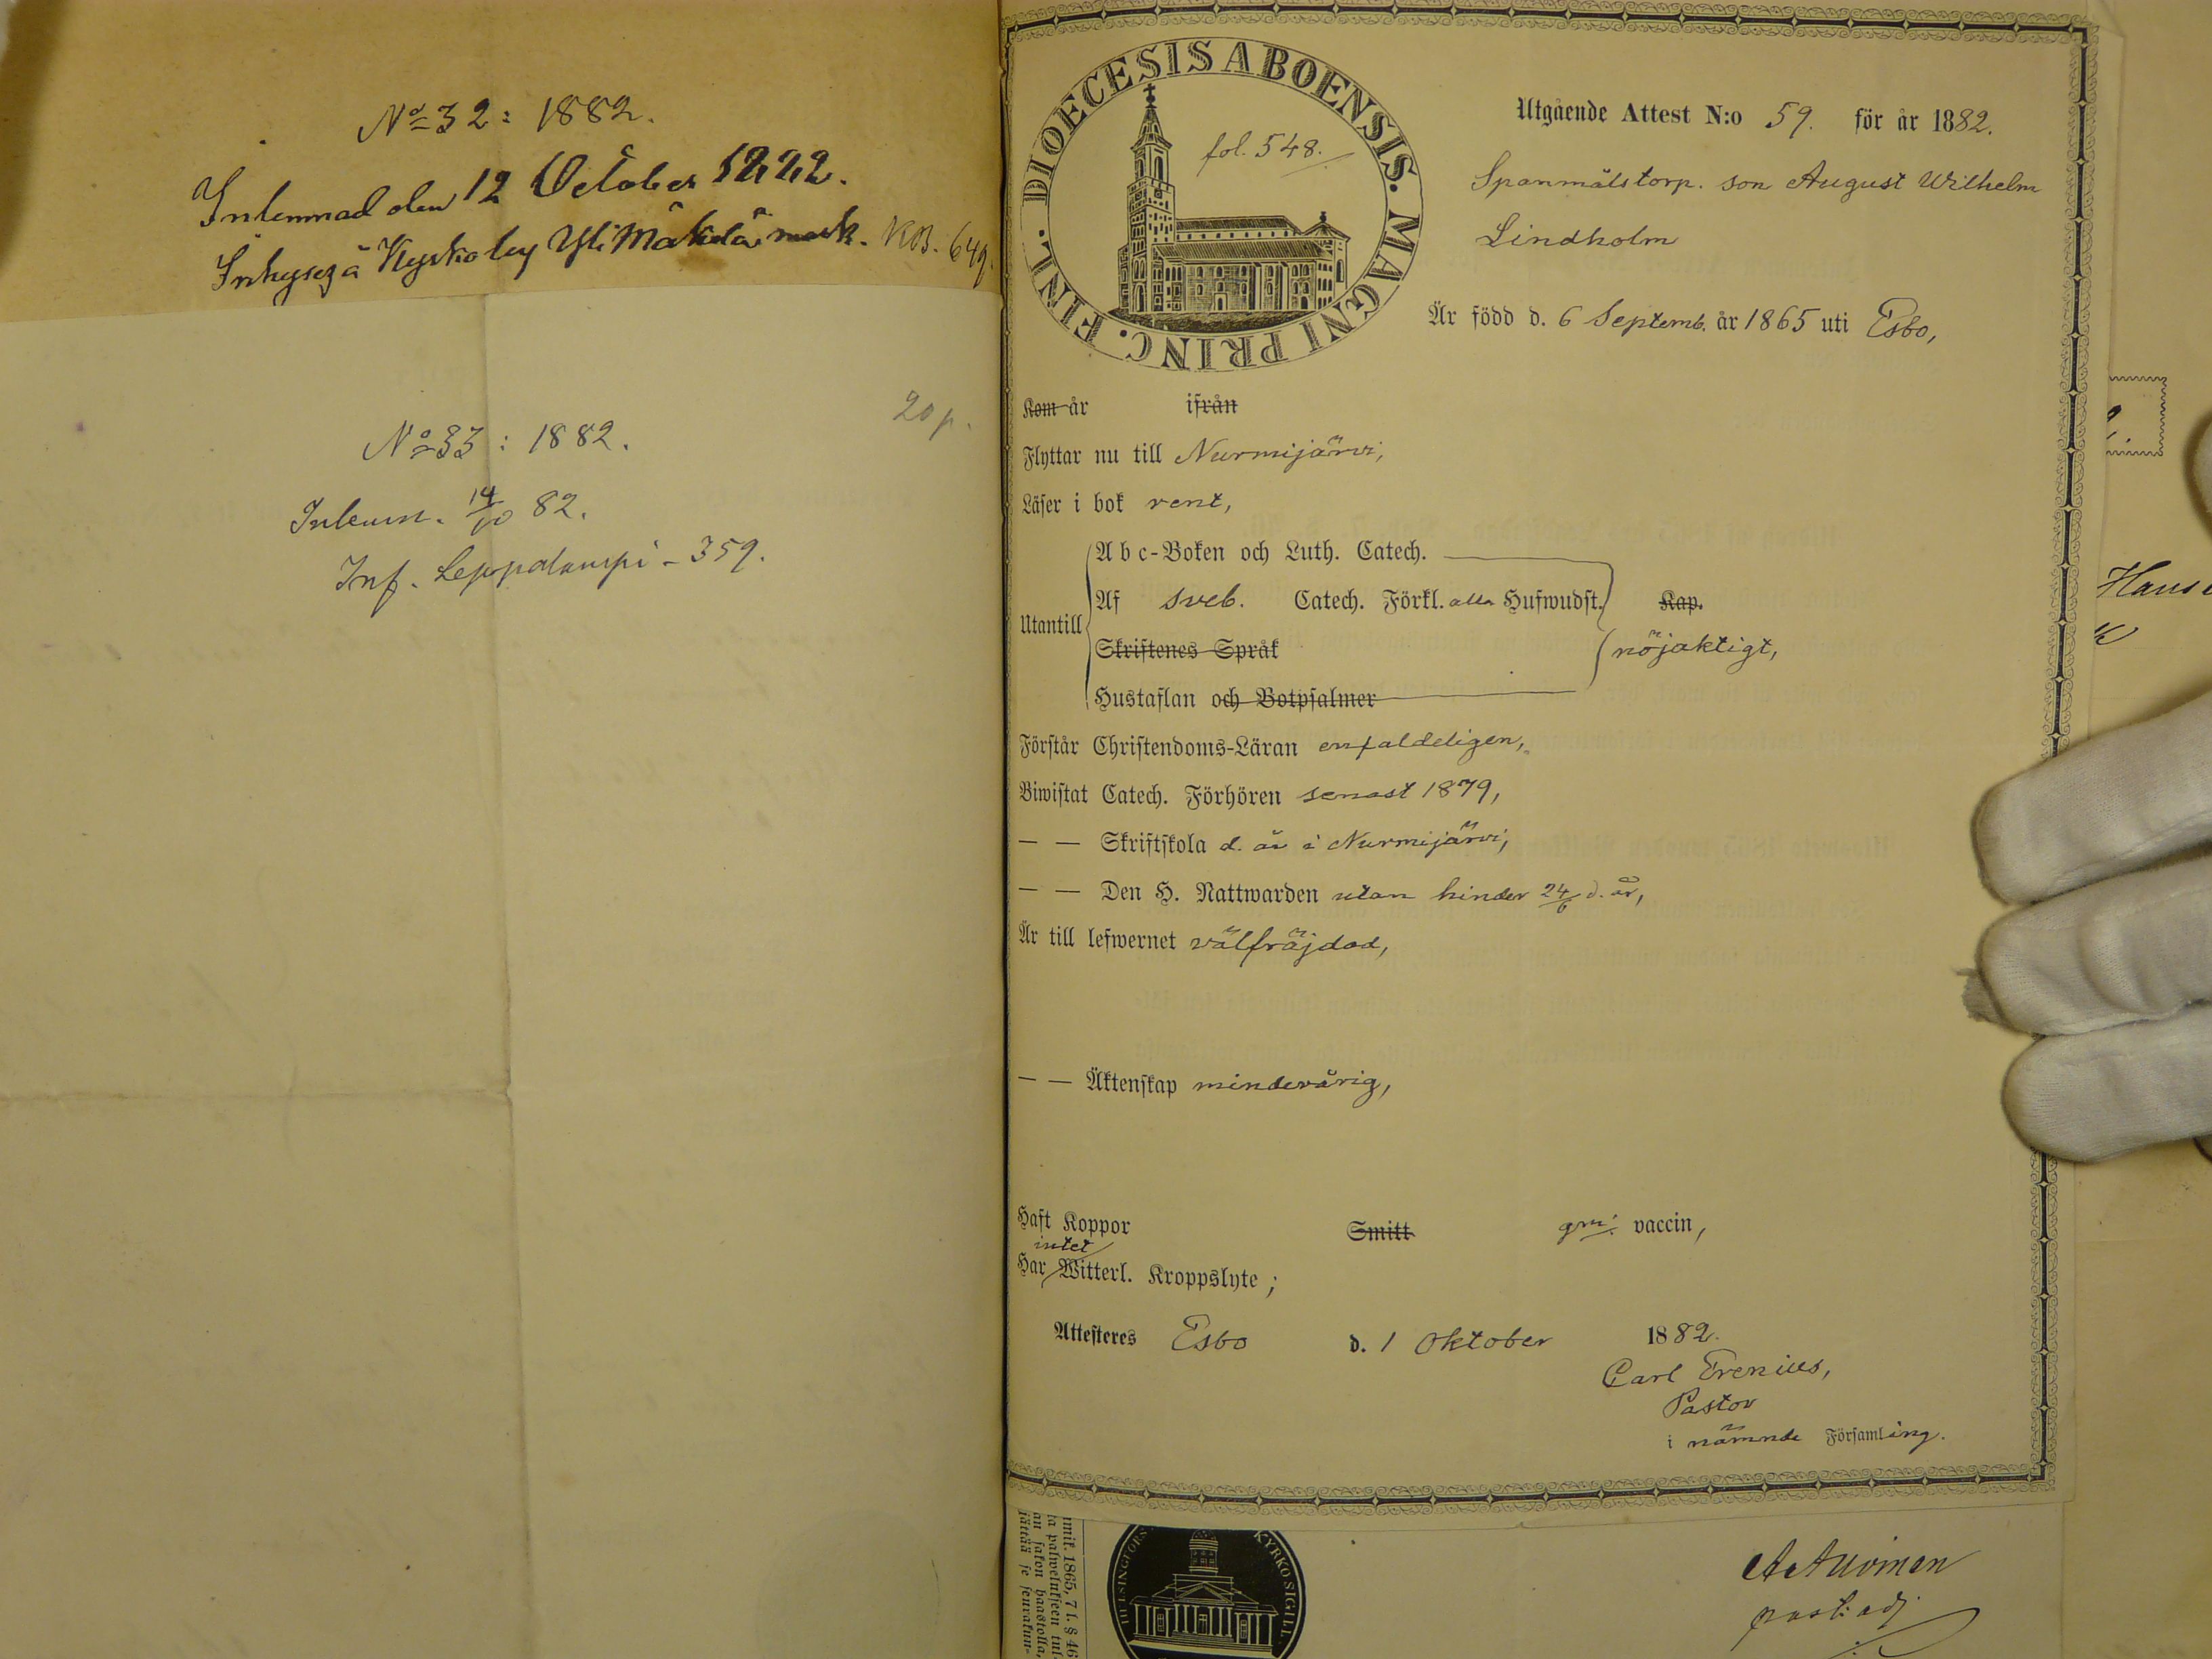 No 32: 1882.
Inlemnad den 12 October 1882.
Inhyses å Kyrkoby Yli Mäkelä mark. KB. 649.
20 p.
No 33: 1882.
Inlemn. 14/10 82.
Inf. Leppälampi - 359.
DIOECESIS ABOENSIS. MAGNI PRINC. FINL.
fol. 548.
Utgående Attest N:o 59. för år 1882.
Spanmålstorp. son August Wilhelm
Lindholm
Är född d. 6 Septemb. år 1865 uti Esbo,
Kom år ifrån
Flyttar nu till Nurmijärvi,
Läser i bok rent,
Utantill
Abc-Boken och Luth. Catech.
Af Sveb. Catech. Förkl. alla Hufwudst. Kap.
Skriftenes Språk
nöjaktigt,
Hustaflan och Botpsalmer
Förstår Christendoms-Läran enfaldeligen,
Biwistat Catech. Förhören senast 1879,
— — Skriftskola d. år i Nurmijärvi,
— — Den H. Nattwarden utan hinder 24/6 d. år,
Är till lefwernet välfräjdad,
— — Äktenskap minderårig,
Haft Koppor Smitt gm: vaccin,
intet
Har Witterl. Kroppslyte;
Attesteres Esbo d. 1 Oktober 1882.
Carl Erenius,
Pastor
i nämnde Församling.
HELSINGFORS KYRKO SIGILL
past. adj.